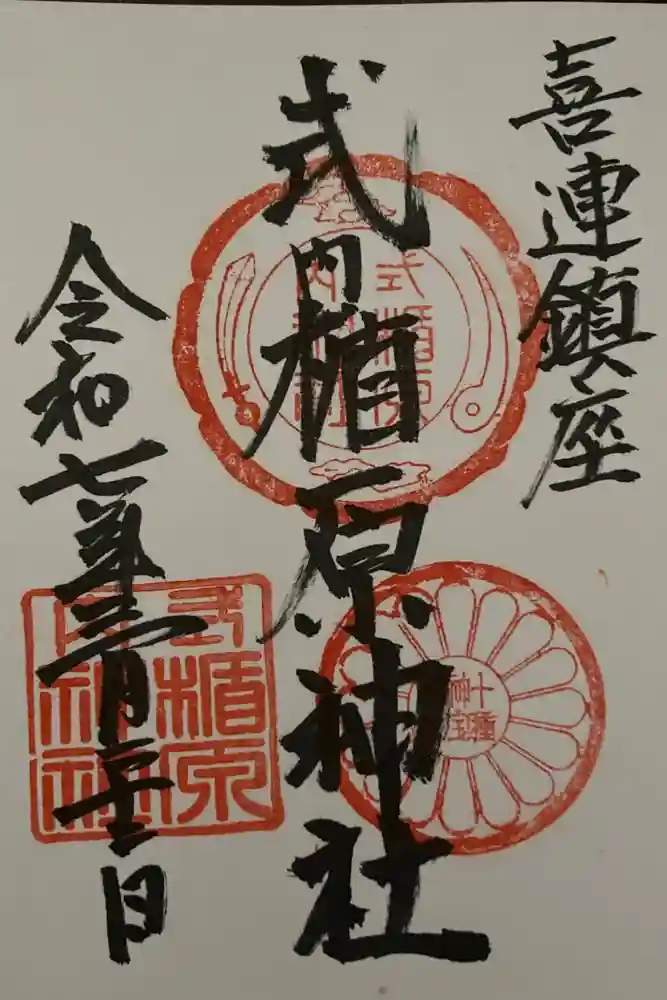 喜連鎮座
式内楯原神社
令和七年三月二十二日
式内楯原神社
十種神宝
式内楯原神社